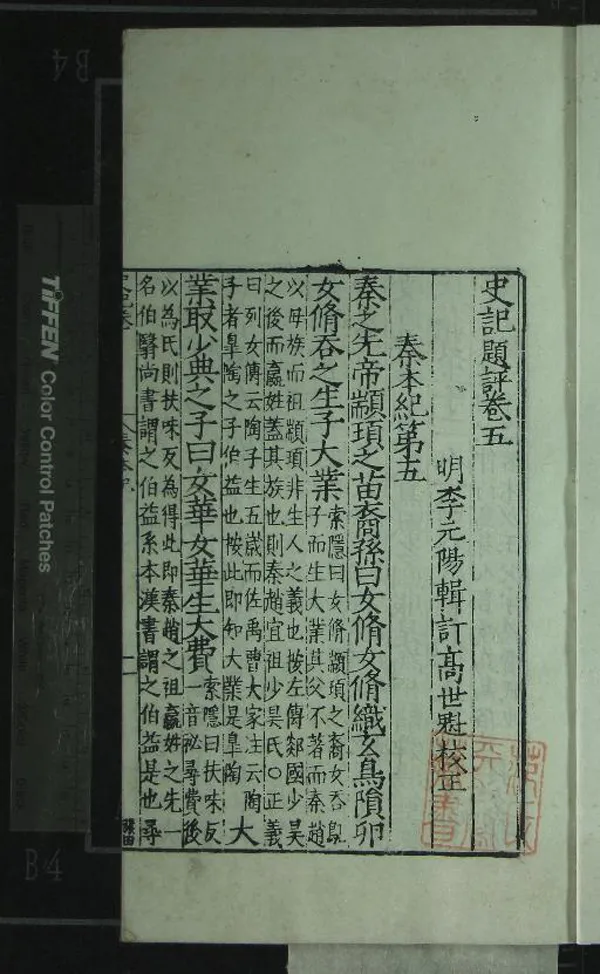 史記題評卷五
明李元陽輯訂高世魁校正
秦本紀第五
秦之先帝顓頊之苗裔孫曰女脩女脩織玄鳥隕卵
女脩吞之生子大業
索隱曰女脩顓頊之裔女吞鳦
子而生大業其父不著而秦趙
以母族而祖顓頊非生人之義也按左傳郯國少昊
之後而嬴姓蓋其族也則秦趙宜祖少昊氏○正義
曰列女傳云陶子生五歲而佐禹曹大家注云陶
子者皐陶之子伯益也按此即知大業是皐陶
大
業取少典之子曰女華女華生大費
索隱曰扶味反
一音祕尋費後
以為氏則扶味反為得此即秦趙之祖嬴姓之先一
名伯翳尚書謂之伯益系本漢書謂之伯益是也尋
TIFFEN Color Control Patches
B4
B4